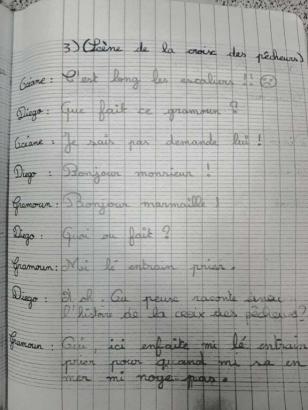 3) (Scène de la croix des pêcheurs)
Océane : C'est long les escaliers !! ☹
Diego : Que fait ce gramoun ?
Océane : Je sais pas demande lui !
Diego : Bonjour monsieur !
Gramoun : Bonjour marmaille !
Diego : Quoi ou fait ?
Gramoun : Mi lé entrain prier.
Diego : A oh. Ou peux raconte
l'histoire de la croix des pêcheurs ?
Gramoun : Oui, ici enfaite mi lé entrain
prier pour quand mi sa en
mer mi noge pas.